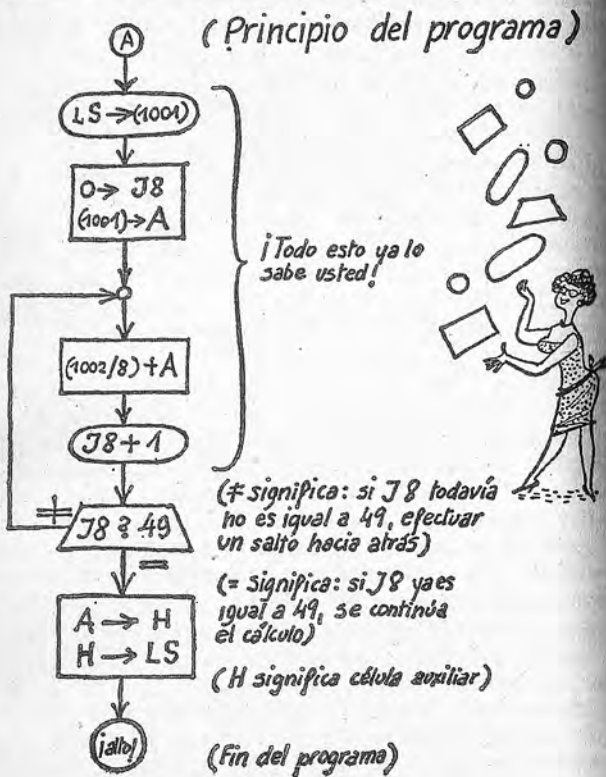 (Principio del programa)
A
LS → (1001)
0 → J8
(1001) → A
¡Todo esto ya lo
sabe usted!
(1002/8) + A
J8 + 1
≠
J8 ? 49
(≠ significa: si J8 todavía
no es igual a 49, efectuar
un salto hacia atrás)
=
(= significa: si J8 ya es
igual a 49, se continúa
el cálculo)
A → H
H → LS
(H significa célula auxiliar)
¡alto!
(Fin del programa)